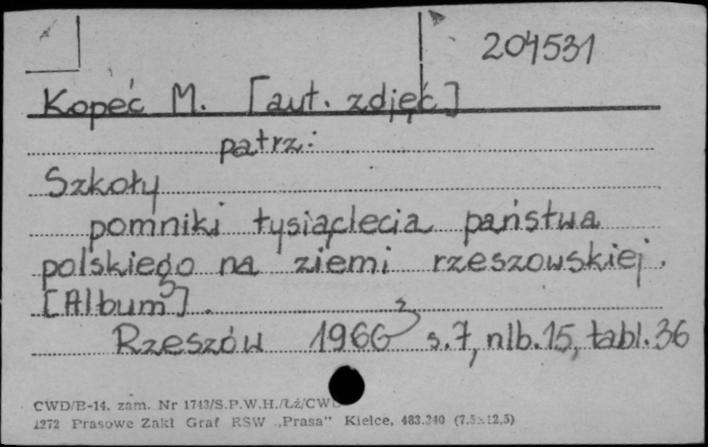 204531
Kopeć M. [aut. zdjęć]
patrz:
Szkoły
pomniki tysiąclecia państwa
polskiego na ziemi rzeszowskiej.
[Album].
Rzeszów 1966 s.7, nlb.15, tabl.36
CWD/B-14. zam. Nr 1743/S.P.W.H./Łź/CWD
1272 Prasowe Zakł Graf RSW „Prasa” Kielce, 483.340 (7.5x12,5)